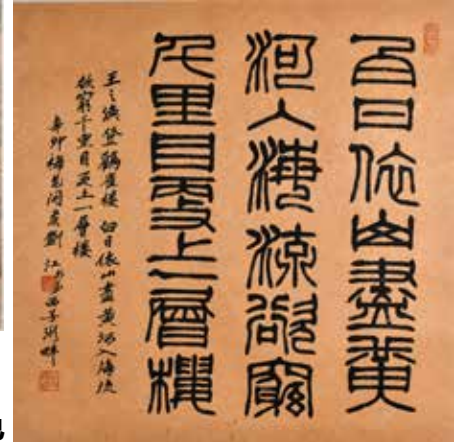 白日依山盡黃
河入海流欲窮
千里目更上一層樓
王之渙登鸛雀楼 白日依山盡黃河入海流
欲窮千里目更上一層楼
辛卯梅花開劉江西子湖畔